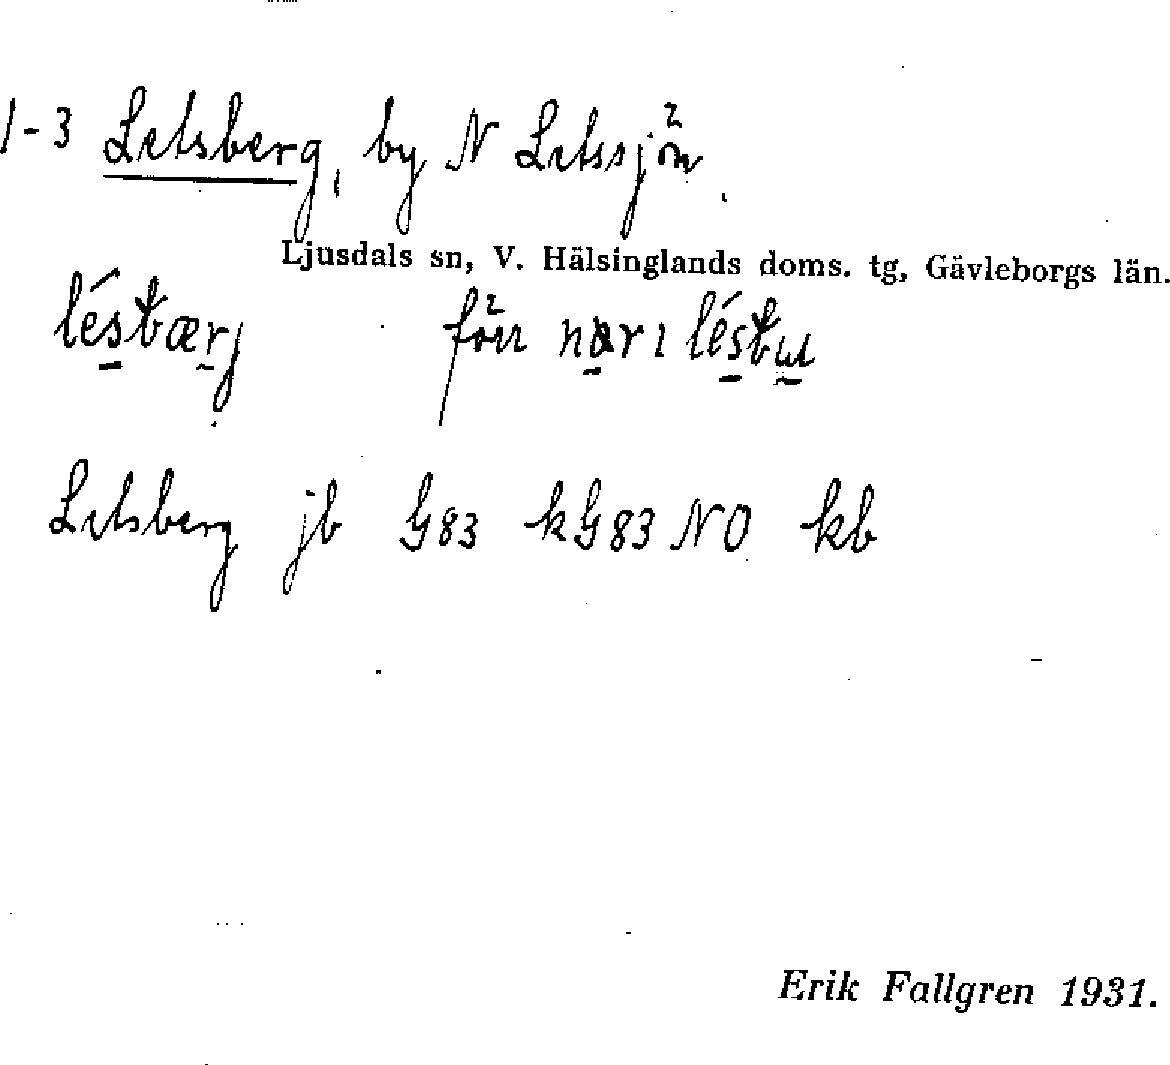 1-3 Letsberg, by N Letssjön.
Ljusdals sn, V. Hälsinglands doms. tg, Gävleborgs län.
léstbærj fön nari léstbu
Letsberg jb G83 kG83 NO kb
Erik Fallgren 1931.